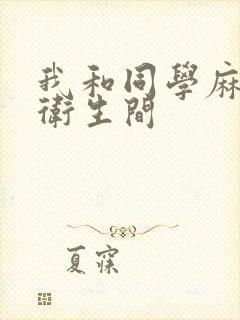 我和同學麻
衛生間
夏寐